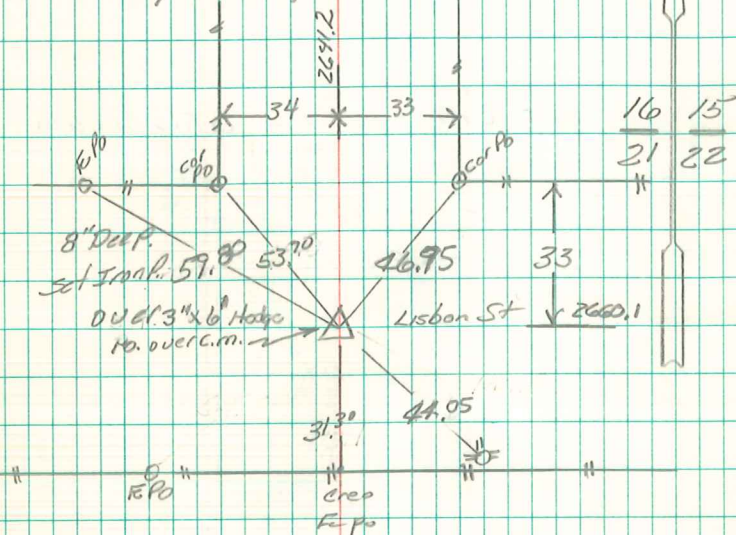 2641.2
34
33
16 | 15
21 | 22
Fe Po
Cor Po
Cor Po
8" Deep.
Set Iron P.
59.80
53.70
46.95
33
Over 3" x 6"
Mo. over C.M.
Lisbon St
2660.1
44.05
31.30
FE PO
Creo
Fe po